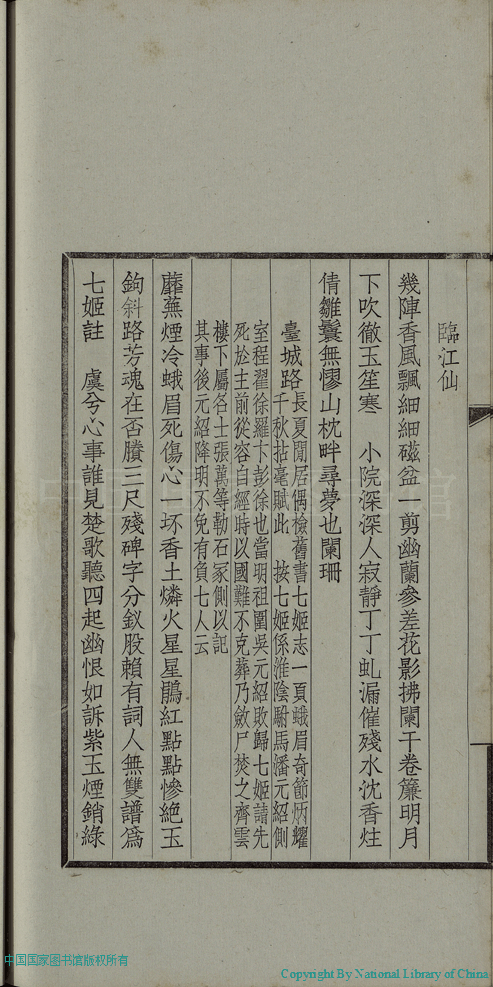 臨江仙
幾陣香風飄細細磁盆一剪幽蘭參差花影拂闌干卷簾明月
下吹徹玉笙寒　小院深深人寂靜丁丁虬漏催殘水沈香炷
倩雛鬟無憀山枕畔尋夢也闌珊
臺城路長夏閒居偶檢舊書七姬志一頁蛾眉奇節炳耀
千秋拈毫賦此　按七姬係淮陰駙馬潘元紹側
室程翟徐羅卞彭徐也當明祖圍吳元紹敗歸七姬請先
死於主前從容自經時以國難不克葬乃斂尸焚之齊雲
樓下屬各士張萬等勒石冢側以記
其事後元紹降明不免有負七人云
蘼蕪煙冷蛾眉死傷心一坏香土燐火星星鵑紅點點慘絕玉
鉤斜路芳魂在否賸三尺殘碑字分釵股賴有詞人無雙譜爲
七姬註　虞兮心事誰見楚歌聽四起幽恨如訴紫玉煙銷綠
中国国家图书馆版权所有
Copyright By National Library of China